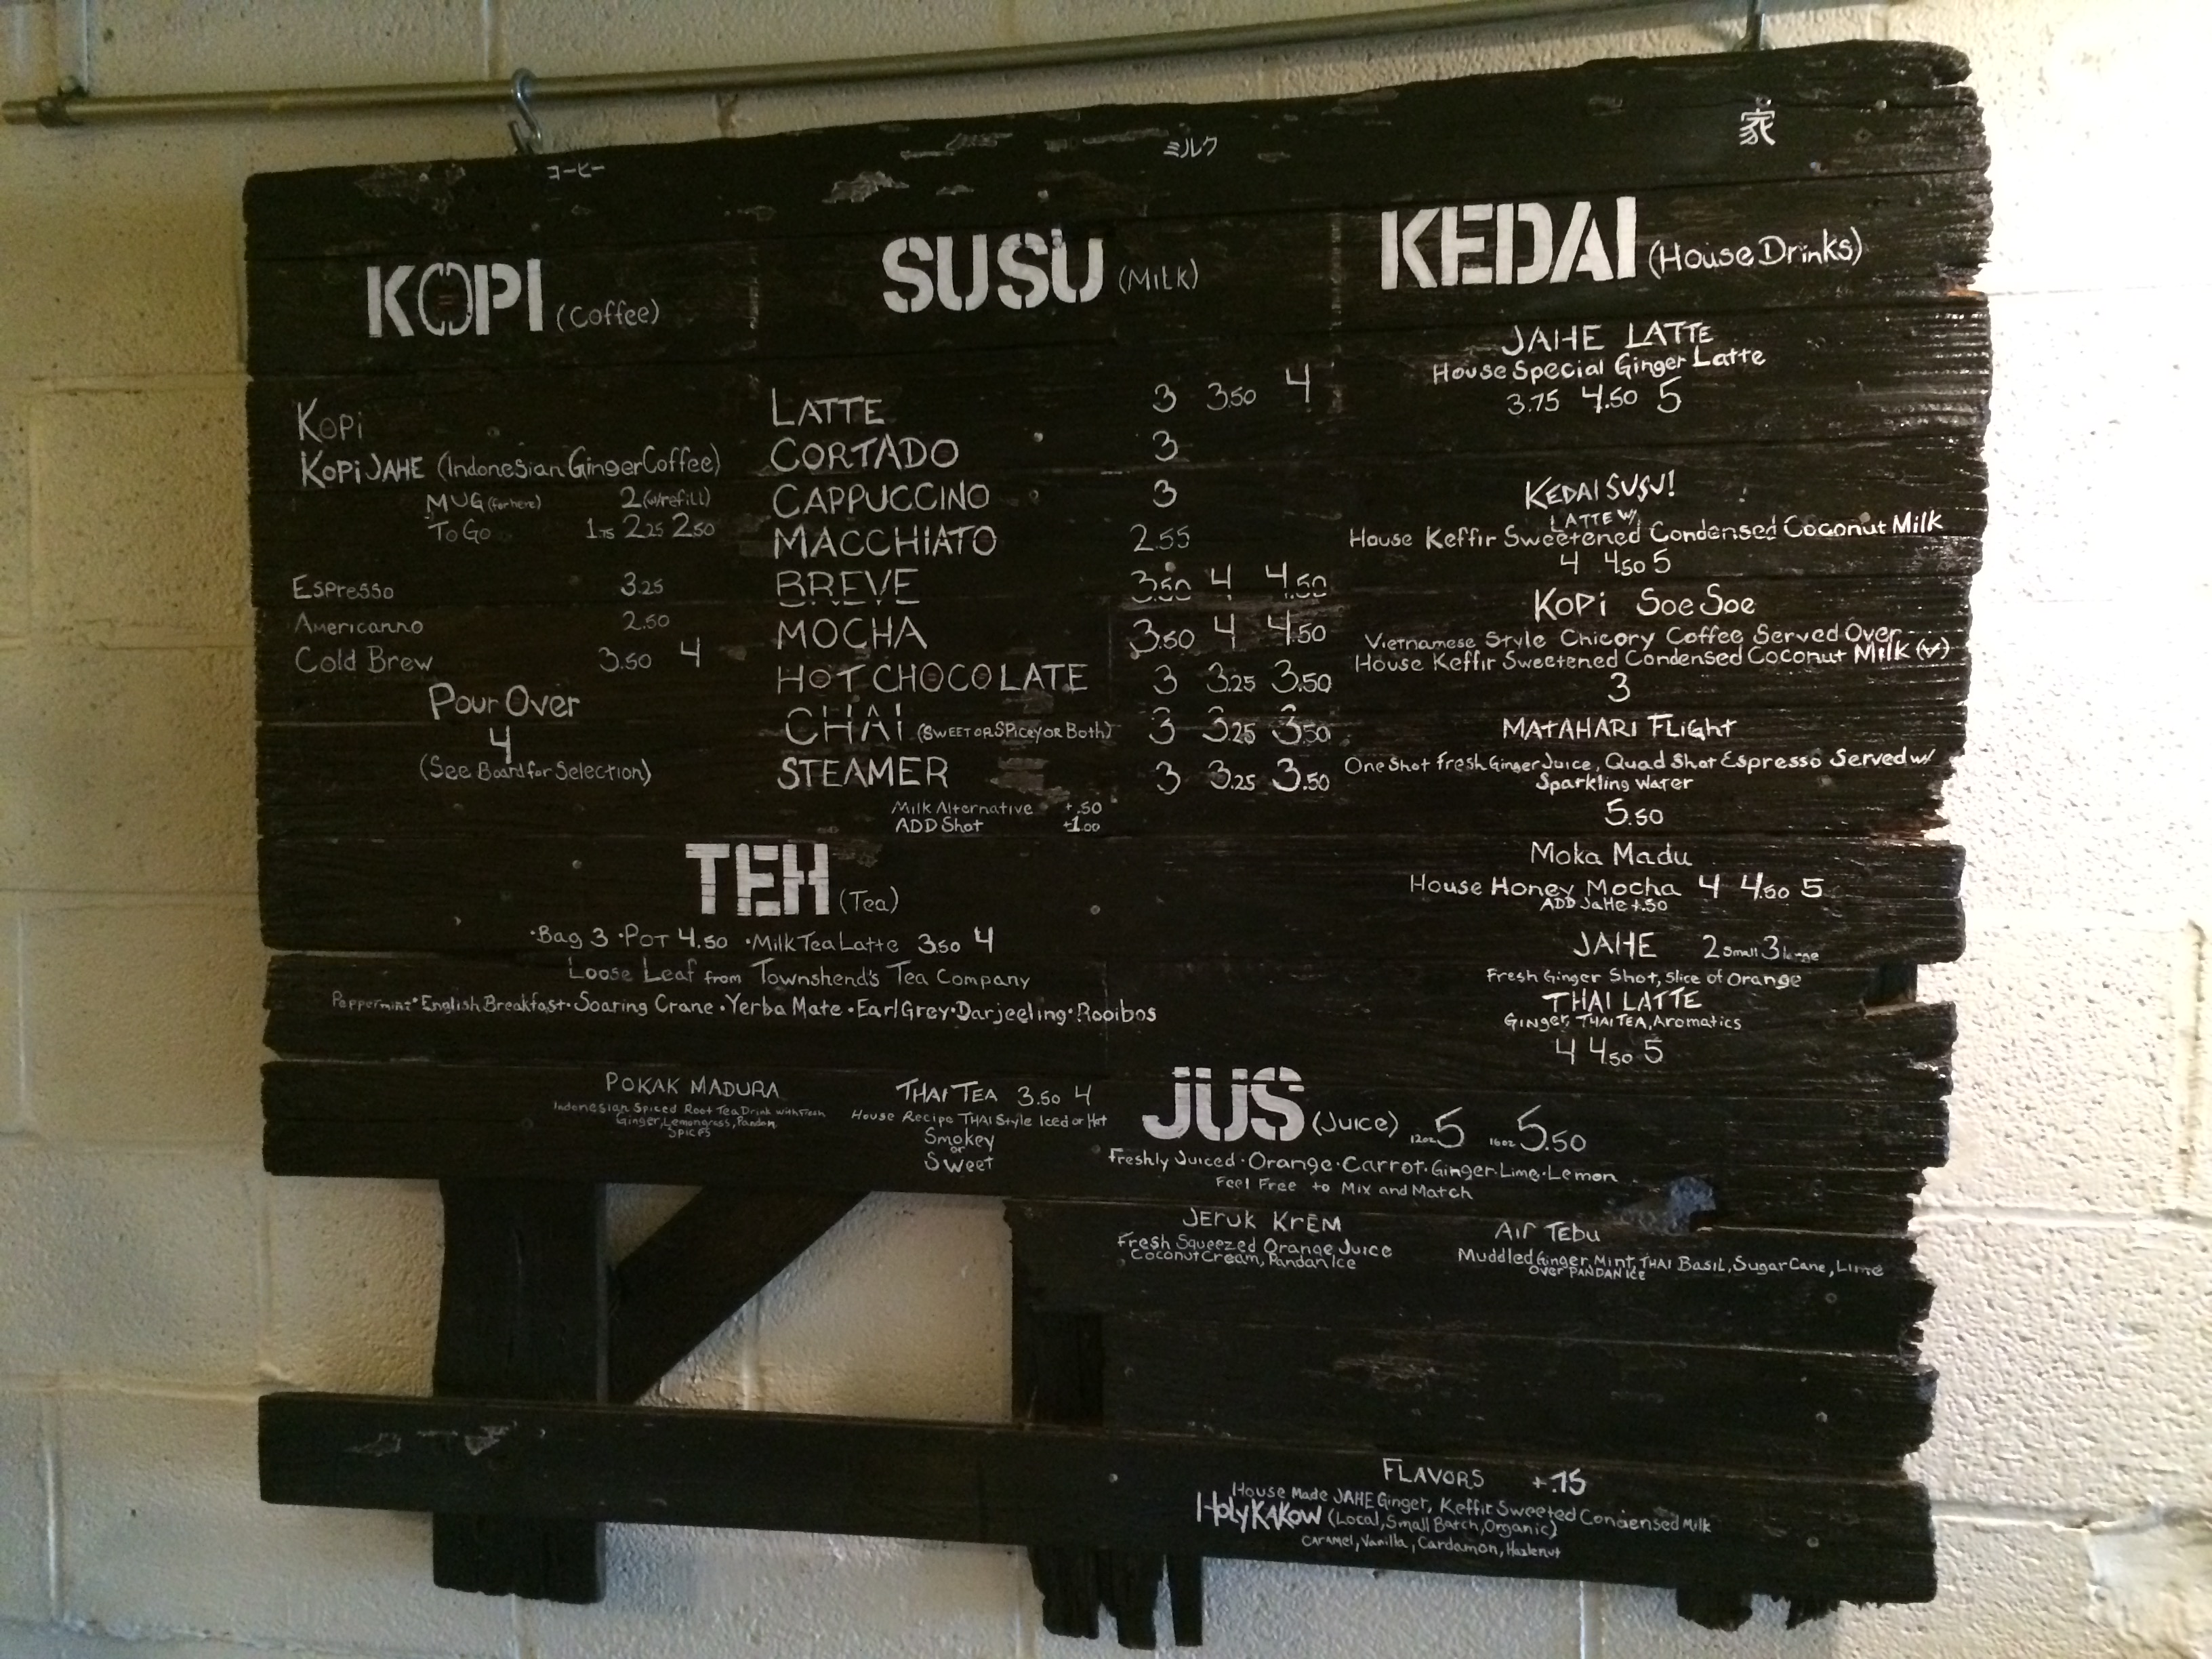 コーヒー
KOPI (Coffee)
Kopi
Kopi JAHE (Indonesian Ginger Coffee)
MUG (for here) 2 (w/refill)
To Go 1.75 2.25 2.50
Espresso 3.25
Americanno 2.50
Cold Brew 3.50 4
Pour Over
4
(See Board for Selection)
ミルク
SUSU (Milk)
LATTE 3 3.50 4
CORTADO 3
CAPPUCCINO 3
MACCHIATO 2.55
BREVE 3.50 4 4.50
MOCHA 3.50 4 4.50
HOT CHOCOLATE 3 3.25 3.50
CHAI (SWEET OR SPICEY OR Both) 3 3.25 3.50
STEAMER 3 3.25 3.50
Milk Alternative +.50
ADD Shot +1.00
家
KEDAI (House Drinks)
JAHE LATTE
House Special Ginger Latte
3.75 4.50 5
KEDAI SUSU!
LATTE W/
House Keffir Sweetened Condensed Coconut Milk
4 4.50 5
Kopi Soe Soe
Vietnamese Style Chicory Coffee Served Over
House Keffir Sweetened Condensed Coconut Milk (v)
3
MATAHARI Flight
One Shot Fresh Ginger Juice, Quad Shot Espresso Served w/
Sparkling Water
5.50
Moka Madu
House Honey Mocha 4 4.50 5
ADD JaHe +.50
JAHE 2 small 3 large
Fresh Ginger Shot, Slice of Orange
THAI LATTE
Ginger, THAI TEA, Aromatics
4 4.50 5
TEH (Tea)
·Bag 3 ·POT 4.50 ·Milk Tea Latte 3.50 4
Loose Leaf from Townshend's Tea Company
Peppermint·English Breakfast·Soaring Crane·Yerba Mate·Earl Grey·Darjeeling·Rooibos
POKAK MADURA
Indonesian Spiced Root Tea Drink with Fresh
Ginger, Lemongrass, Pandan
Spices
THAI TEA 3.50 4
House Recipe THAI Style Iced or Hot
Smokey
or
Sweet
JUS (Juice) 12oz 5 16oz 5.50
Freshly Juiced·Orange·Carrot·Ginger·Lime·Lemon
Feel Free to Mix and Match
JERUK KRĒM
Fresh Squeezed Orange Juice
Coconut Cream, Pandan Ice
Air TEBU
Muddled Ginger, Mint, THAI Basil, Sugar Cane, Lime
Over PANDAN ICE
FLAVORS +.75
House Made JAHE Ginger, Keffir Sweeted Condensed Milk
HolyKAKOW (Local, Small Batch, Organic)
Caramel, Vanilla, Cardamon, Hazlenut